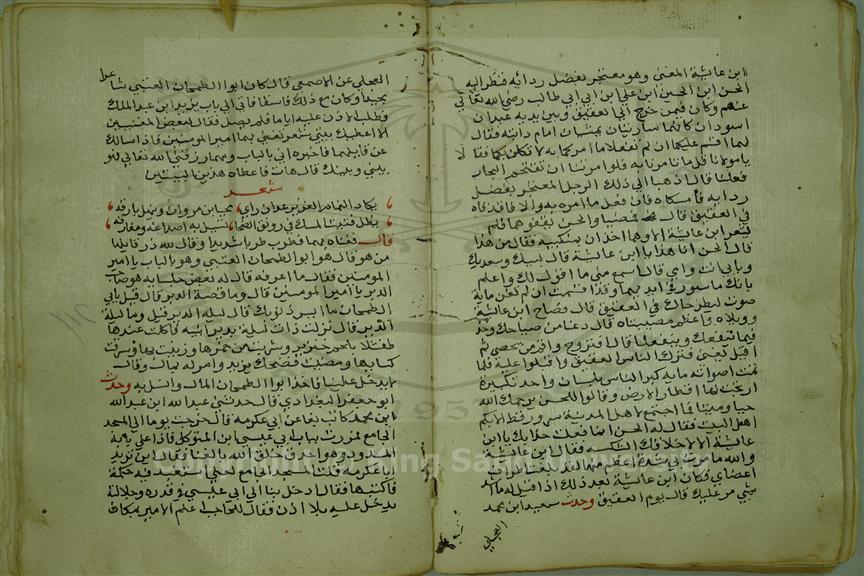 ابن عائشة المغنى وهو معتجر بفضل ردائه فنظر اليه
الحسن ابن الحسين ابن علي ابن ابي طالب رضي الله تعالي
عنهم وكان فيمن خرج الي العقيق وبين يديه عبدان
اسودان كانهما ساريتان يمشيان امام دابته فقال
لهما اقسم عليكما ان لم تفعلا ما امركما به لا نكلن بكما فقالا
يا مولانا قل ما تامرنا به فلو امرتنا ان نقتحم النار
فعلنا قال اذهبا الي ذلك الرجل المعتجر بفضل
ردايه فامسكاه فان فعل ما امره به والا فاقذفاه
في العقيق قال فمضيا والحسن يقفوهما فلم
يشعر ابن عائشة الا وهما اخذان بمنكبيه فقال من هذا
قال الحسن انا هذا يا ابن عائشة قال لبيك وسعديك
وبابي انت وامي قال اسمع مني ما اقول لك واعلم
بانك ماسور في ايديهما وقد اقسمت ان لم تغن ماية
صوت ليطرحاك في العقيق قال فصاح ابن عائشة
وويلاه واعظم مصيبتاه قال دعنا من صياحك وخذ
فيما ينفعك وينفعنا قال اقترح واقم من يحصي ثم
اقبل يغني فترك الناس العقيق واقبلوا عليه فلما
تمت اصواته ماية كبر الناس بلسان واحد تكبيرة
ارتجت لها اقطار الارض وقالوا للحسن يرحمك الله
حيا وميتا فما اجتمع لاهل المدينة سرور قط الا بكم
اهل البيت فقال له الحسن انما فعلت هذا بك يا ابن
عائشة الا لاخلاقك الشكسة فقال ابن عائشة
والله ما مرت بي شدة اعظم منها لقد بلغت اطراف
اعضاي فكان ابن عائشة بعد ذلك اذا قيل له ما اشد
شي مر عليك قال يوم العقيق وحدث سعيد ابن محمد
العجلي
العجلي عن الاصمعي قال كان ابو الطمحان القيني شاعرا
مجيدا وكان مع ذلك فاسقا فاتي الي باب يزيد ابن عبد الملك
فطلب الاذن عليه اياما فلم يصل فقال لبعض المغنيين
الا اعطيك بيتي شعر تغني بهما امير المومنين فاذا سالك
عن قايلهما فاخبره اني بالباب ومهما رزقني الله تعالي فهو
بيني وبينك قال هات فاعطاه هذين البيتين
شعر
يكاد الغمام الغر يرعد ان راي محيا ابن مروان وينهل بارقه
يظل فتيت المسك في رونق الضحا تسيل به اصداغه ومفارقه
قال فغناه بهما فطرب طربا شديدا وقال لله در قايلهما
من هو قال هو ابو الطمحان القيني وهو بالباب يا امير
المومنين فقال ما اعرفه قال له بعض جلسايه هو صاحب
الدير يا امير المومنين قال وما قصة الدير قال قيل لابي
الطمحان ما ايسر ذنوبك قال ليلة الدير قيل وما ليلة
الدير قال نزلت ذات ليلة بديرانية فاكلت عندها
طفشلا بلحم خنزير وشربت من خمرها وزنيت بها وسرقت
كساها ومضيت فضحك يزيد وامر له بمال وقال
لا يدخل علينا فاخذ ابو الطمحان المال وانسل به وحدث
ابو جعفر البغدادي قال حدثني عبد الله ابن عبد الله
ابن محمد كاتب بغا عن ابي عكرمة قال خرجت يوما الي المسجد
الجامع فمررت بباب ابي عيسي ابن المتوكل فاذا علي بابه
المسدود وهو احذق خلق الله بالغنا فقال اين تريد
يا ابا عكرمة قلت المسجد الجامع لعلي استفيد فيه حكمة
فاكتبها فقال ادخل بنا الي ابي عيسي في قدره وجلالته
يدخل عليه بلا اذن فقال للحاجب اعلم الامير بمكان
Copyright © King Saud University
1957